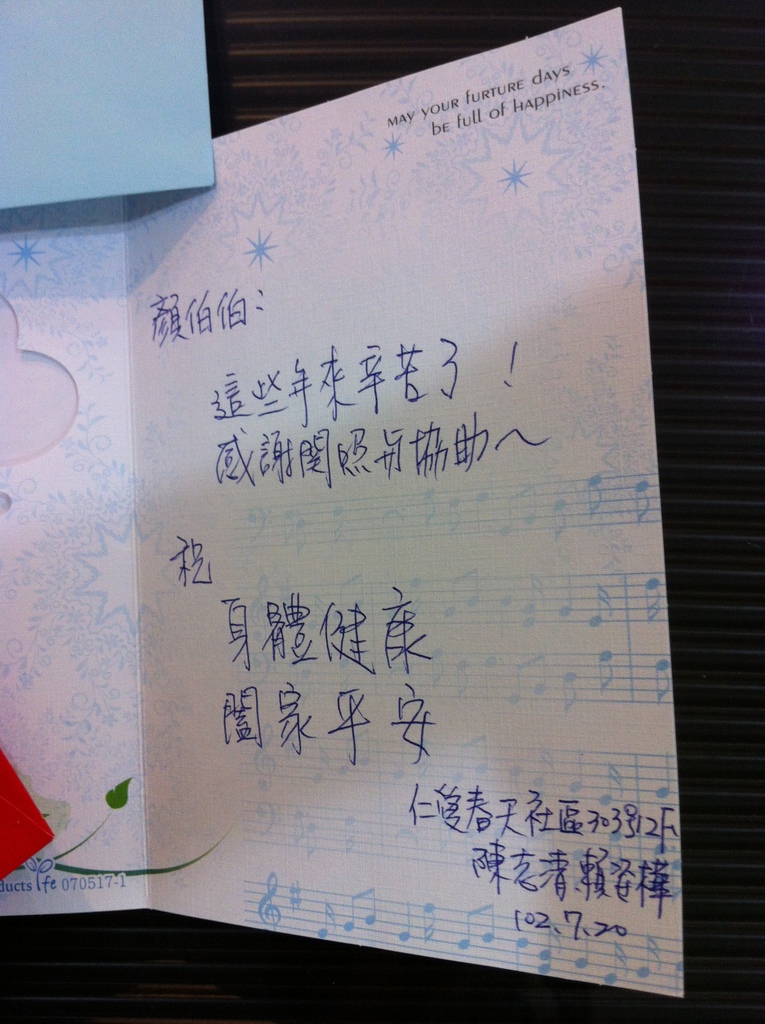 MAY YOUR FURTURE dAYS
bE full of HAPPINESS.
顏伯伯:
這些年來辛苦了!
感謝関照與協助~
祝
身體健康
闔家平安
仁愛春天社區303號12F
陳志清.賴姿樺
102.7.20
ducts life 070517-1